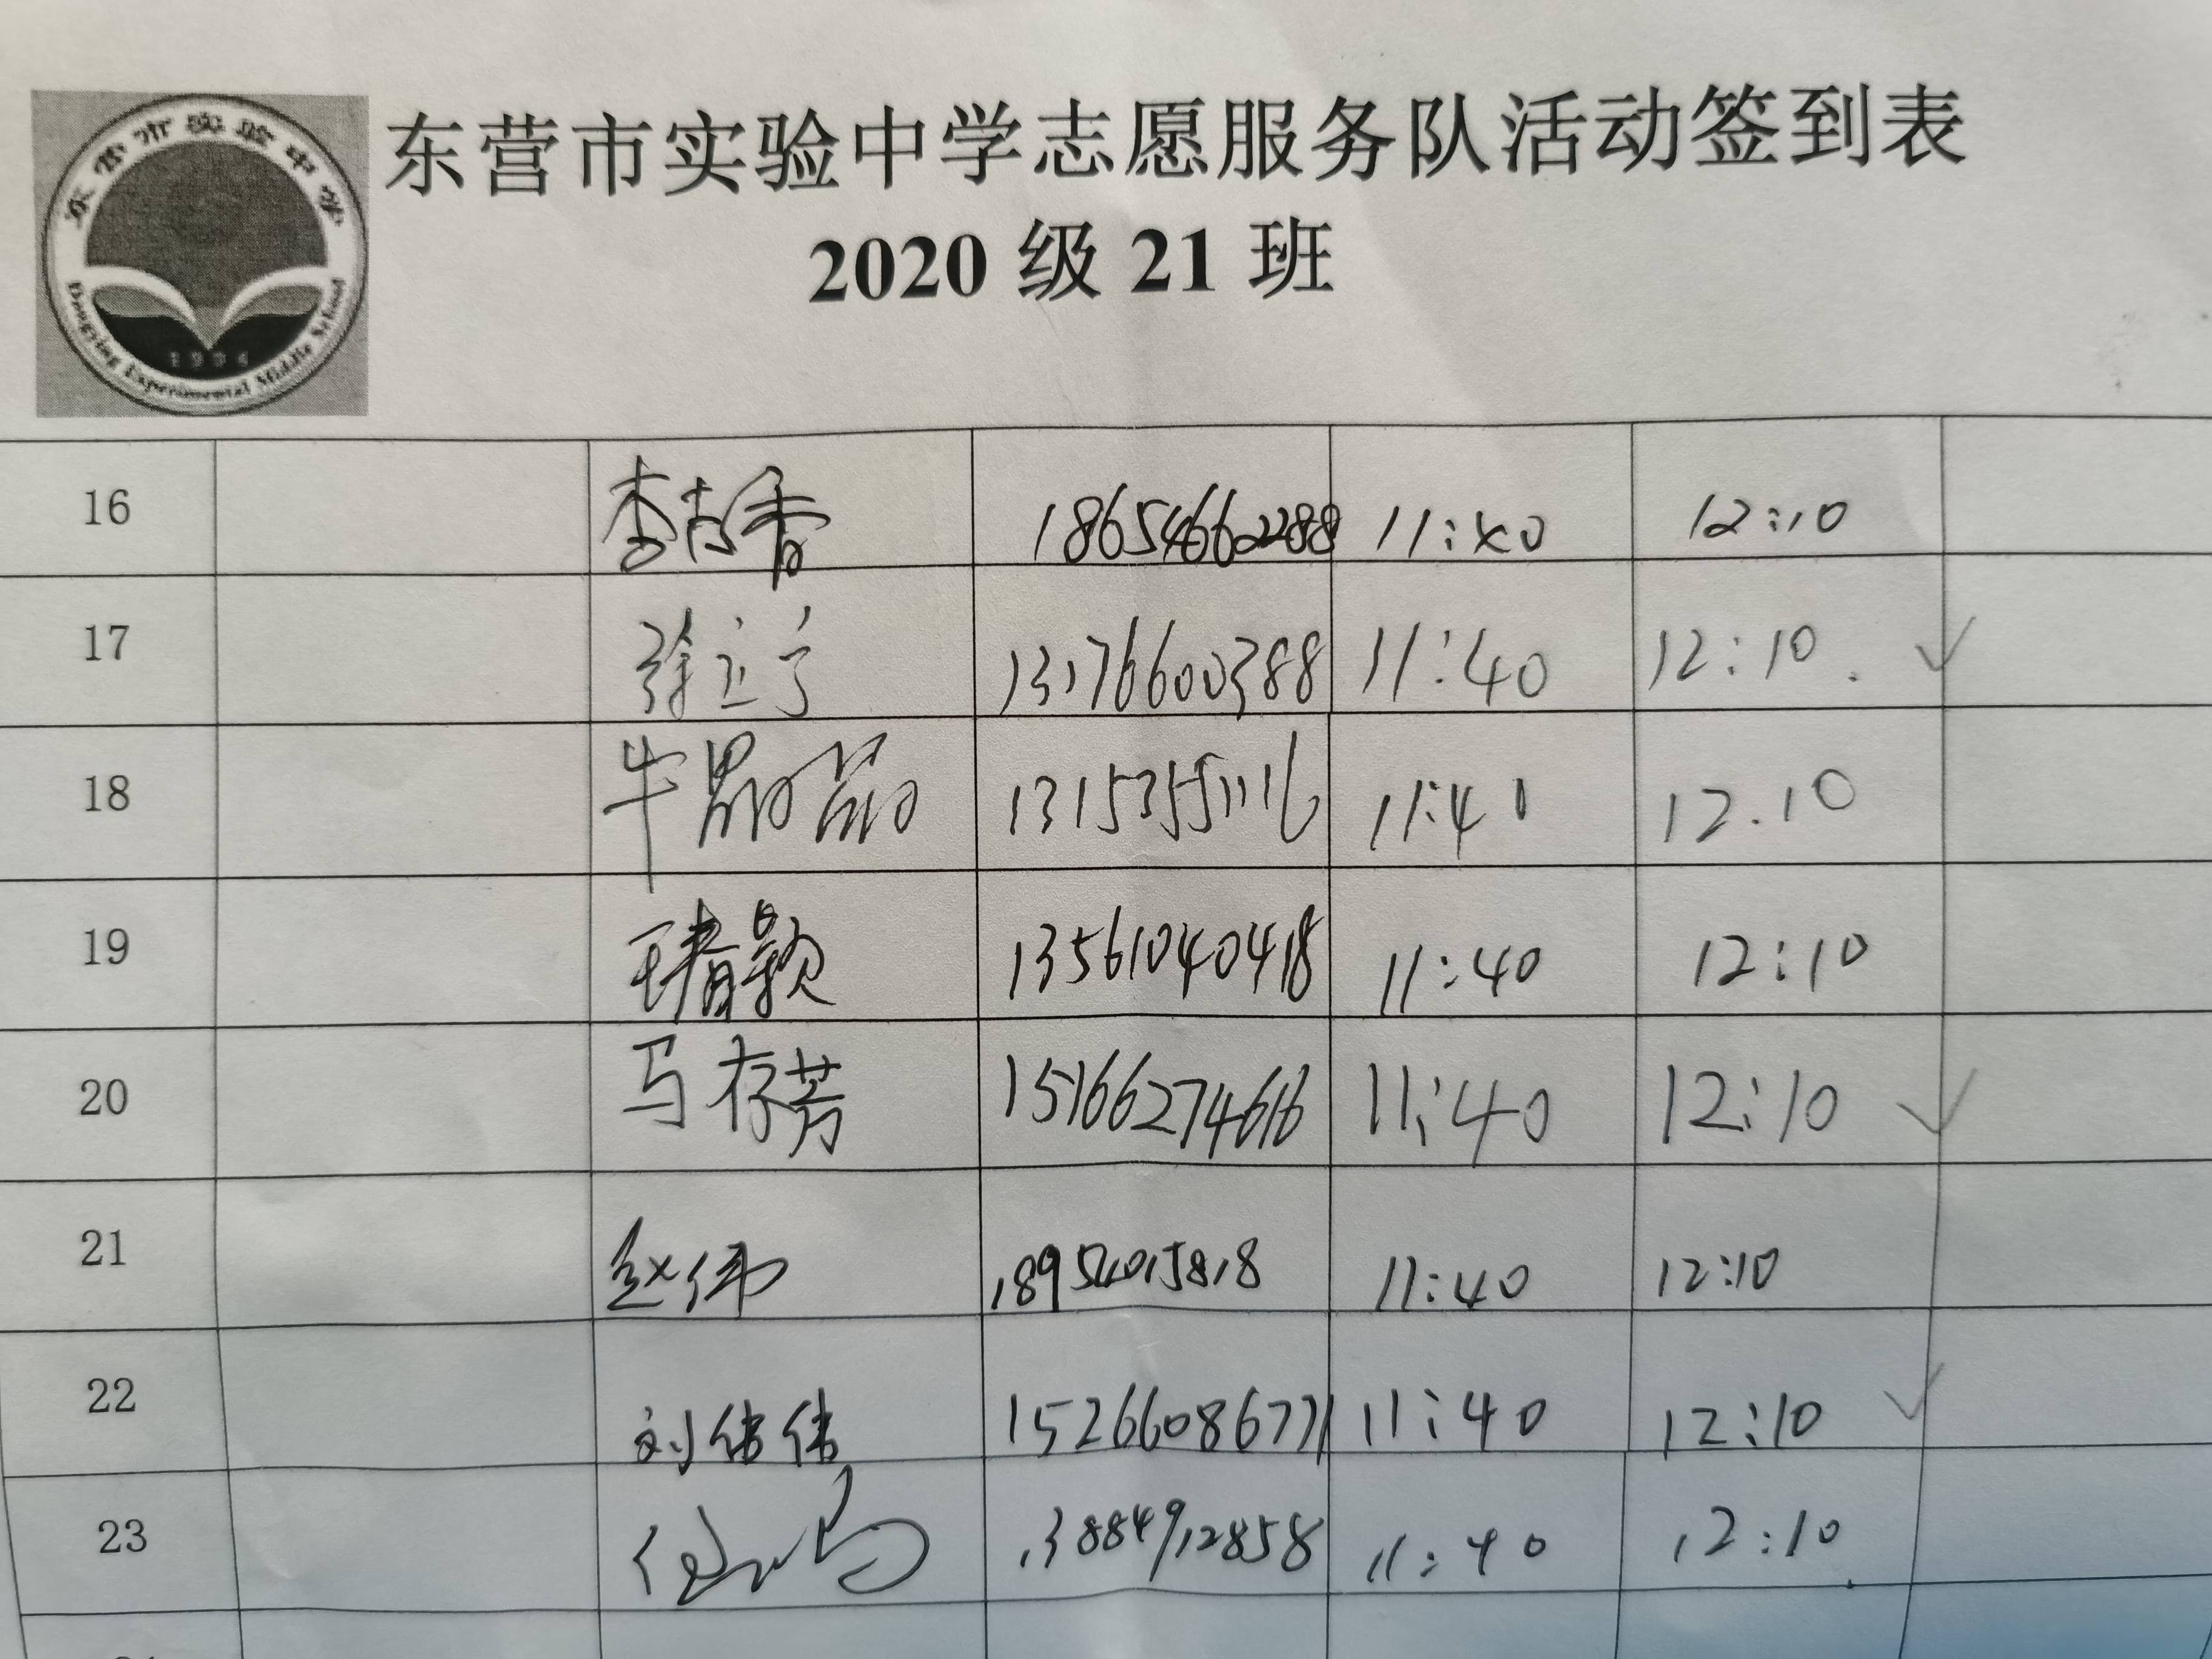 东营市实验中学
Dongying Experimental Middle School
1994
东营市实验中学志愿服务队活动签到表
2020 级 21 班
16 18654662288 11:40 12:10
17 徐立宁 13176600388 11:40 12:10 . ✓
18 牛 13153551116 11:40 12.10
19 王春颖 13561040418 11:40 12:10
20 马存芳 15166274616 11:40 12:10 ✓
21 赵伟 18954015818 11:40 12:10
22 刘伟伟 15266086771 11:40 12:10 ✓
23 13884912858 11:40 12:10